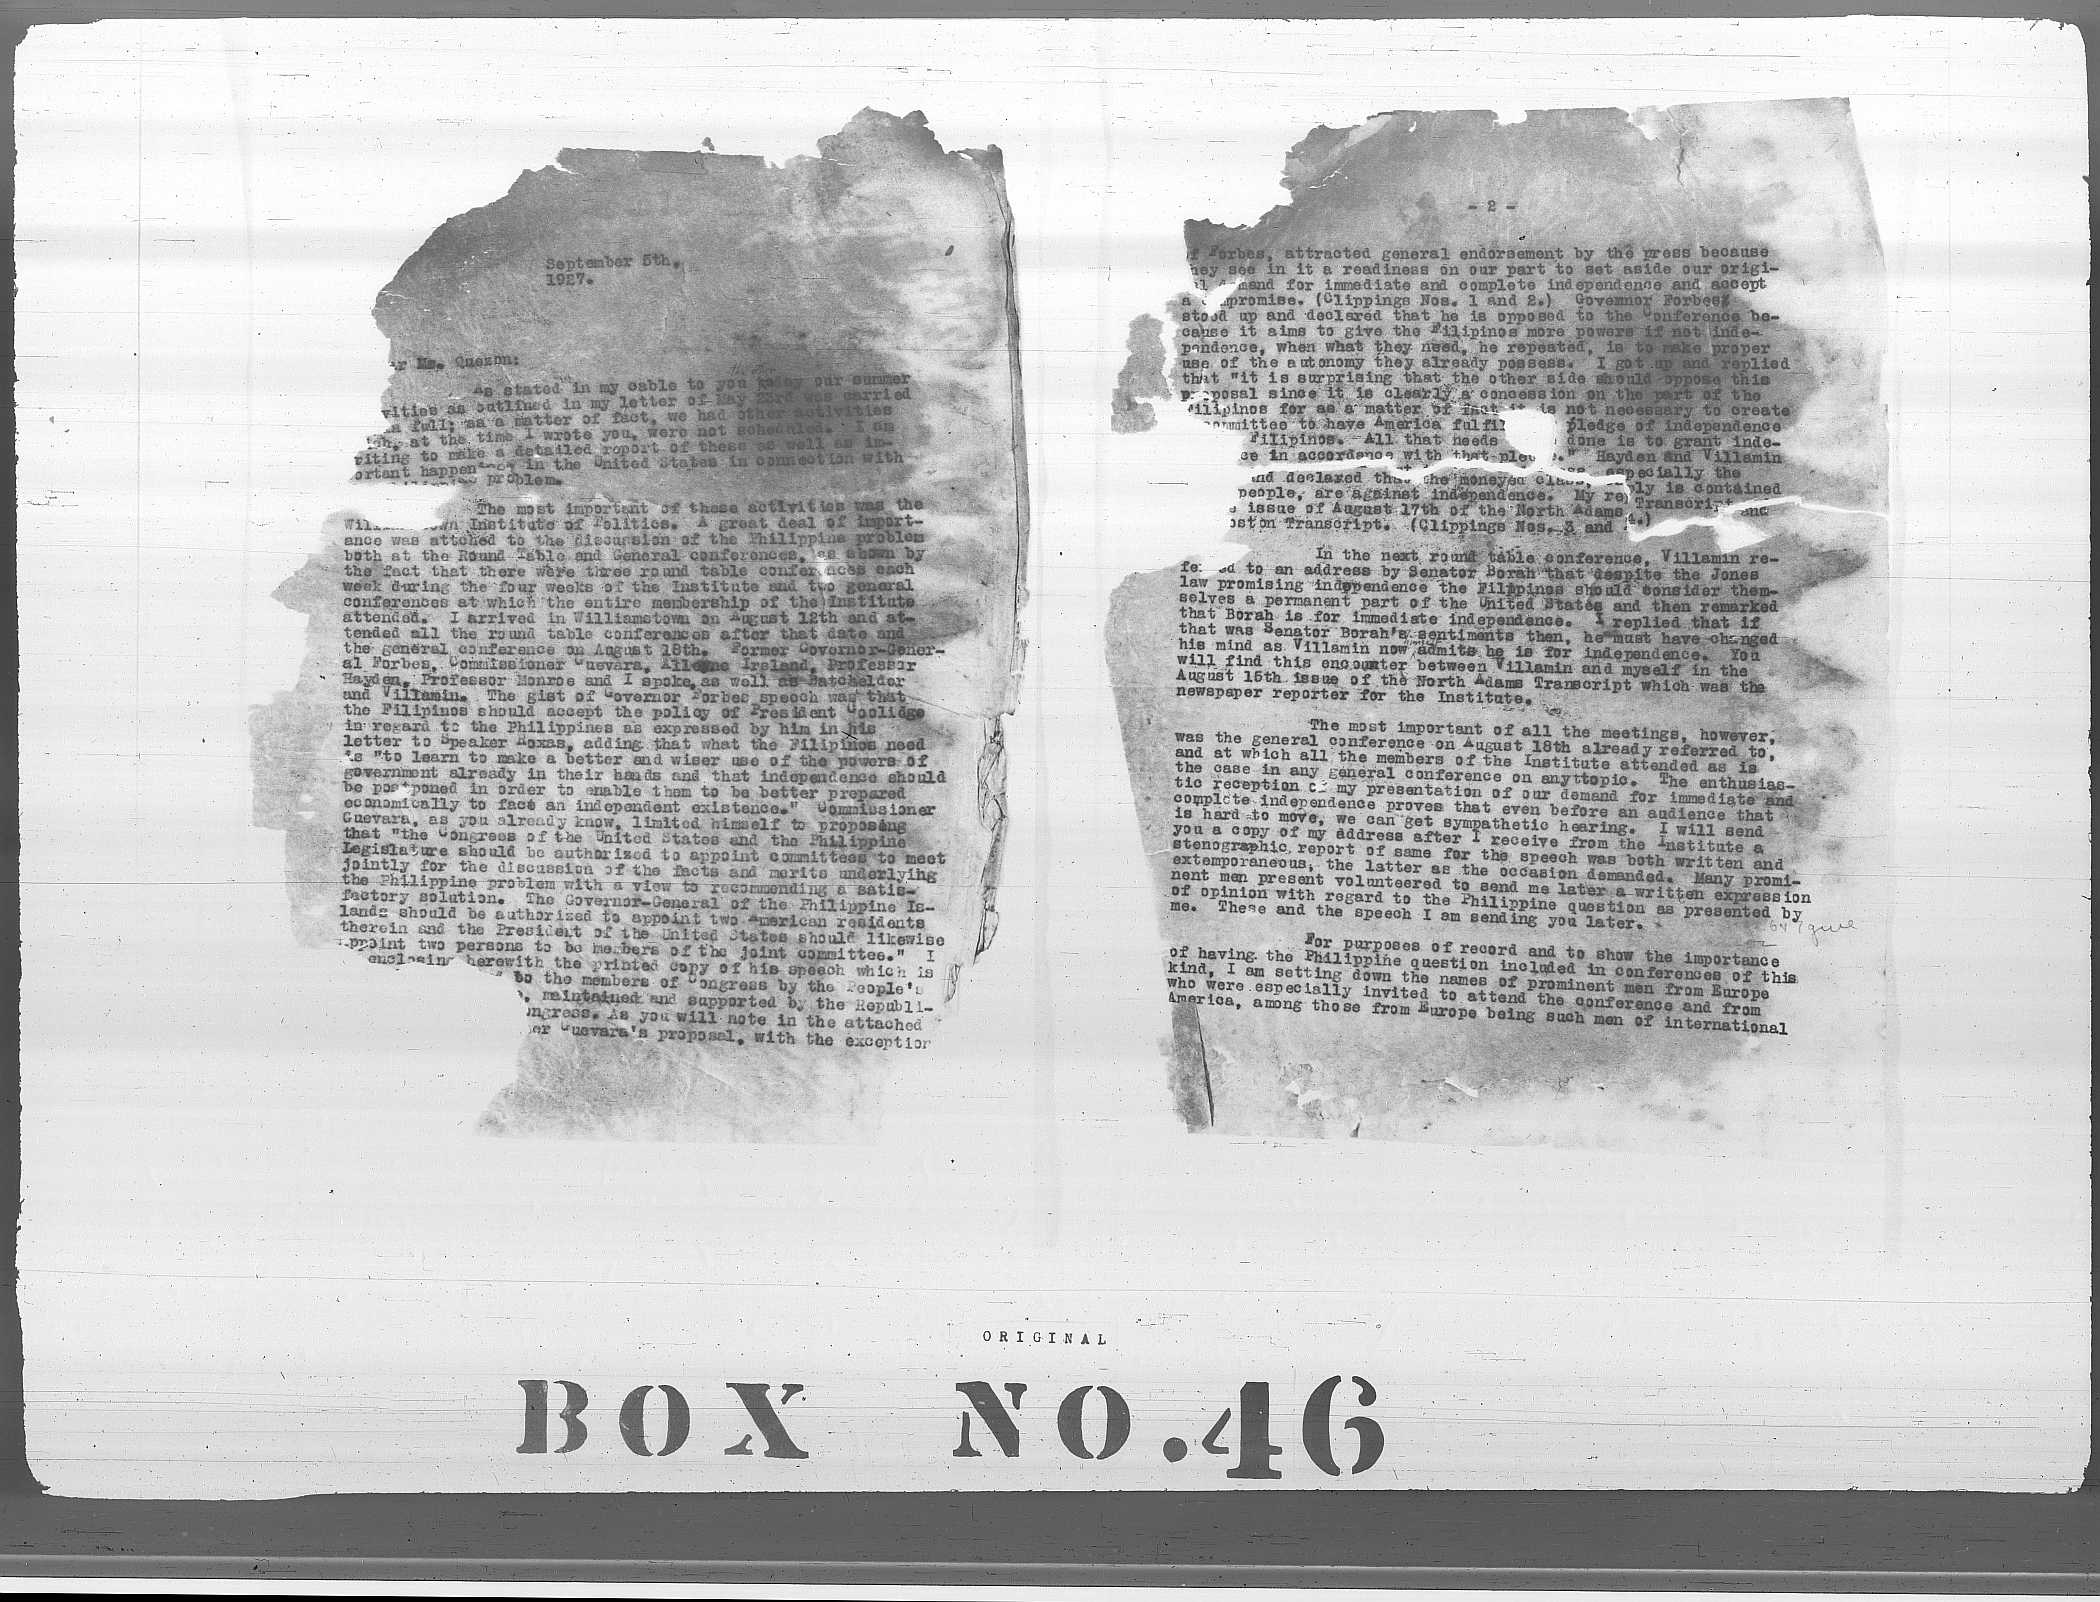 September 5th,
1927.
Mr. Quezon:
As stated in my cable to you today our summer
vities as outlined in my letter of May 23rd was carried
full; as a matter of fact, we had other activities
at the time I wrote you, were not scheduled. I am
riting to make a detailed report of these as well as im-
ortant happen in the United States in connection with
problem.
The most important of these activities was the
Institute of Politics. A great deal of import-
ance was attched to the discussion of the Philippine problem
both at the Round Table and General conferences, as shown by
the fact that there were three round table conferences each
week during the four weeks of the Institute and two general
conferences at which the entire membership of the Institute
attended. I arrived in Williamstown on August 12th and at-
tended all the round table conferences after that date and
the general conference on August 18th. Former Governor-Gener-
al Forbes, Commissioner Guevara, Alleyne Ireland, Professor
Hayden, Professor Monroe and I spoke, as well as Batcheldor
and Villamin. The gist of Governor Forbes speech was that
the Filipinos should accept the policy of President Coolidge
in regard to the Philippines as expressed by him in his
letter to Speaker Roxas, adding that what the Filipinos need
is "to learn to make a better and wiser use of the powers of
government already in their hands and that independence should
be postponed in order to enable them to be better prepared
economically to face an independent existence." Commissioner
Guevara, as you already know, limited himself to proposing
that "the Congress of the United States and the Philippine
Legislature should be authorized to appoint committees to meet
jointly for the discussion of the facts and merits underlying
the Philippine problem with a view to recommending a satis-
factory solution. The Governor-General of the Philippine Is-
lands should be authorized to appoint two American residents
therein and the President of the United States should likewise
appoint two persons to be members of the joint committee." I
enclosing herewith the printed copy of his speech which is
to the members of Congress by the People's
, maintained and supported by the Republi-
ngress. As you will note in the attached
er Guevara's proposal, with the exception
- 2 -
of Forbes, attracted general endorsement by the press because
hey see in it a readiness on our part to set aside our origi-
al demand for immediate and complete independence and accept
a compromise. (Clippings Nos. 1 and 2.) Governor Forbes
stood up and declared that he is opposed to the Conference be-
cause it aims to give the Filipinos more powers if not inde-
pendence, when what they need, he repeated, is to make proper
use of the autonomy they already possess. I got up and replied
that "it is surprising that the other side should oppose this
proposal since it is clearly a concession on the part of the
Filipinos for as a matter of fact it is not necessary to create
committee to have America fulfil pledge of independence
Filipinos. All that needs done is to grant inde-
ce in accordance with that pledge." Hayden and Villamin
nd declared that the moneyed class, especially the
people, are against independence. My reply is contained
issue of August 17th of the North Adams Transcript and
oston Transcript. (Clippings Nos. 3 and 4.)
In the next round table conference, Villamin re-
fered to an address by Senator Borah that despite the Jones
law promising independence the Filipinos should consider them-
selves a permanent part of the United States and then remarked
that Borah is for immediate independence. I replied that if
that was Senator Borah's sentiments then, he must have changed
his mind as Villamin now admits he is for independence. You
will find this encounter between Villamin and myself in the
August 15th issue of the North Adams Transcript which was the
newspaper reporter for the Institute.
The most important of all the meetings, however,
was the general conference on August 18th already referred to,
and at which all the members of the Institute attended as is
the case in any general conference on anyttopic. The enthusias-
tic reception of my presentation of our demand for immediate and
complete independence proves that even before an audience that
is hard to move, we can get sympathetic hearing. I will send
you a copy of my address after I receive from the Institute a
stenographic report of same for the speech was both written and
extemporaneous, the latter as the occasion demanded. Many promi-
nent men present volunteered to send me later a written expression
of opinion with regard to the Philippine question as presented by
me. These and the speech I am sending you later.
For purposes of record and to show the importance
of having the Philippine question included in conferences of this
kind, I am setting down the names of prominent men from Europe
who were especially invited to attend the conference and from
America, among those from Europe being such men of international
ORIGINAL
BOX NO.46